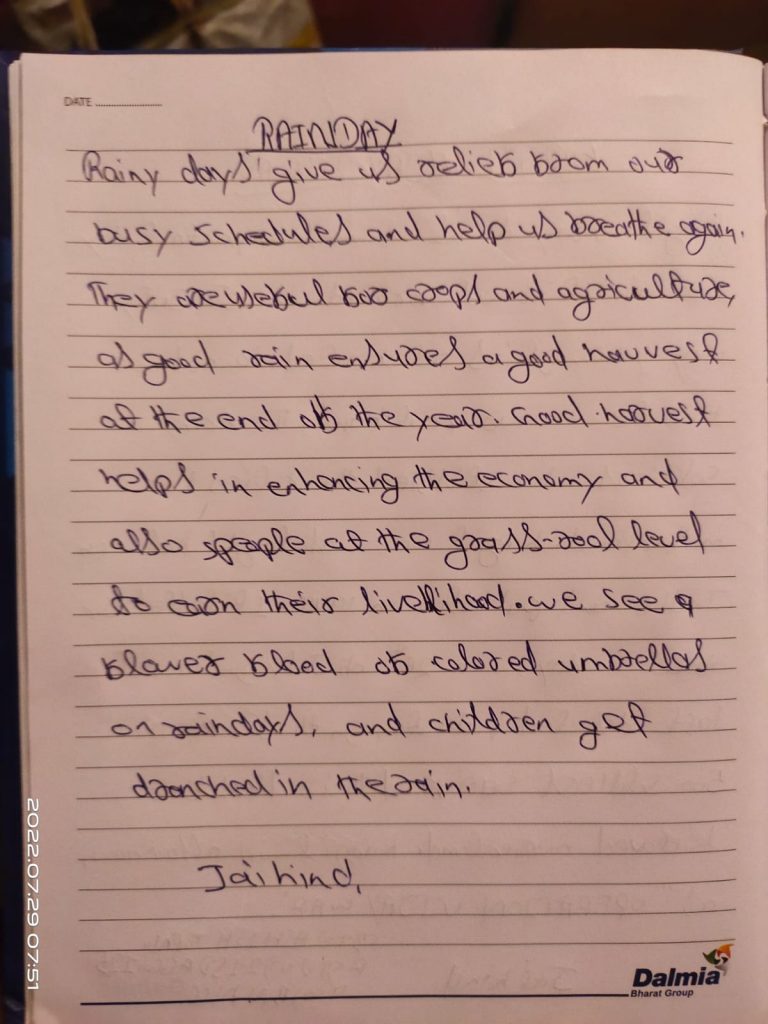 DATE ........................
RAINDAY
Rainy days give us relief from our
busy schedules and help us breathe again.
They are useful for crops and agriculture,
as good rain ensures a good hauvest
at the end of the year. Good harvest
helps in enhancing the economy and
also speople at the grass-rool level
to earn their livelihood. we see a
flower flood of colored umbrellas
on raindays, and children get
dranched in the rain.
Jai hind,
2022.07.29 07:51
Dalmia
Bharat Group